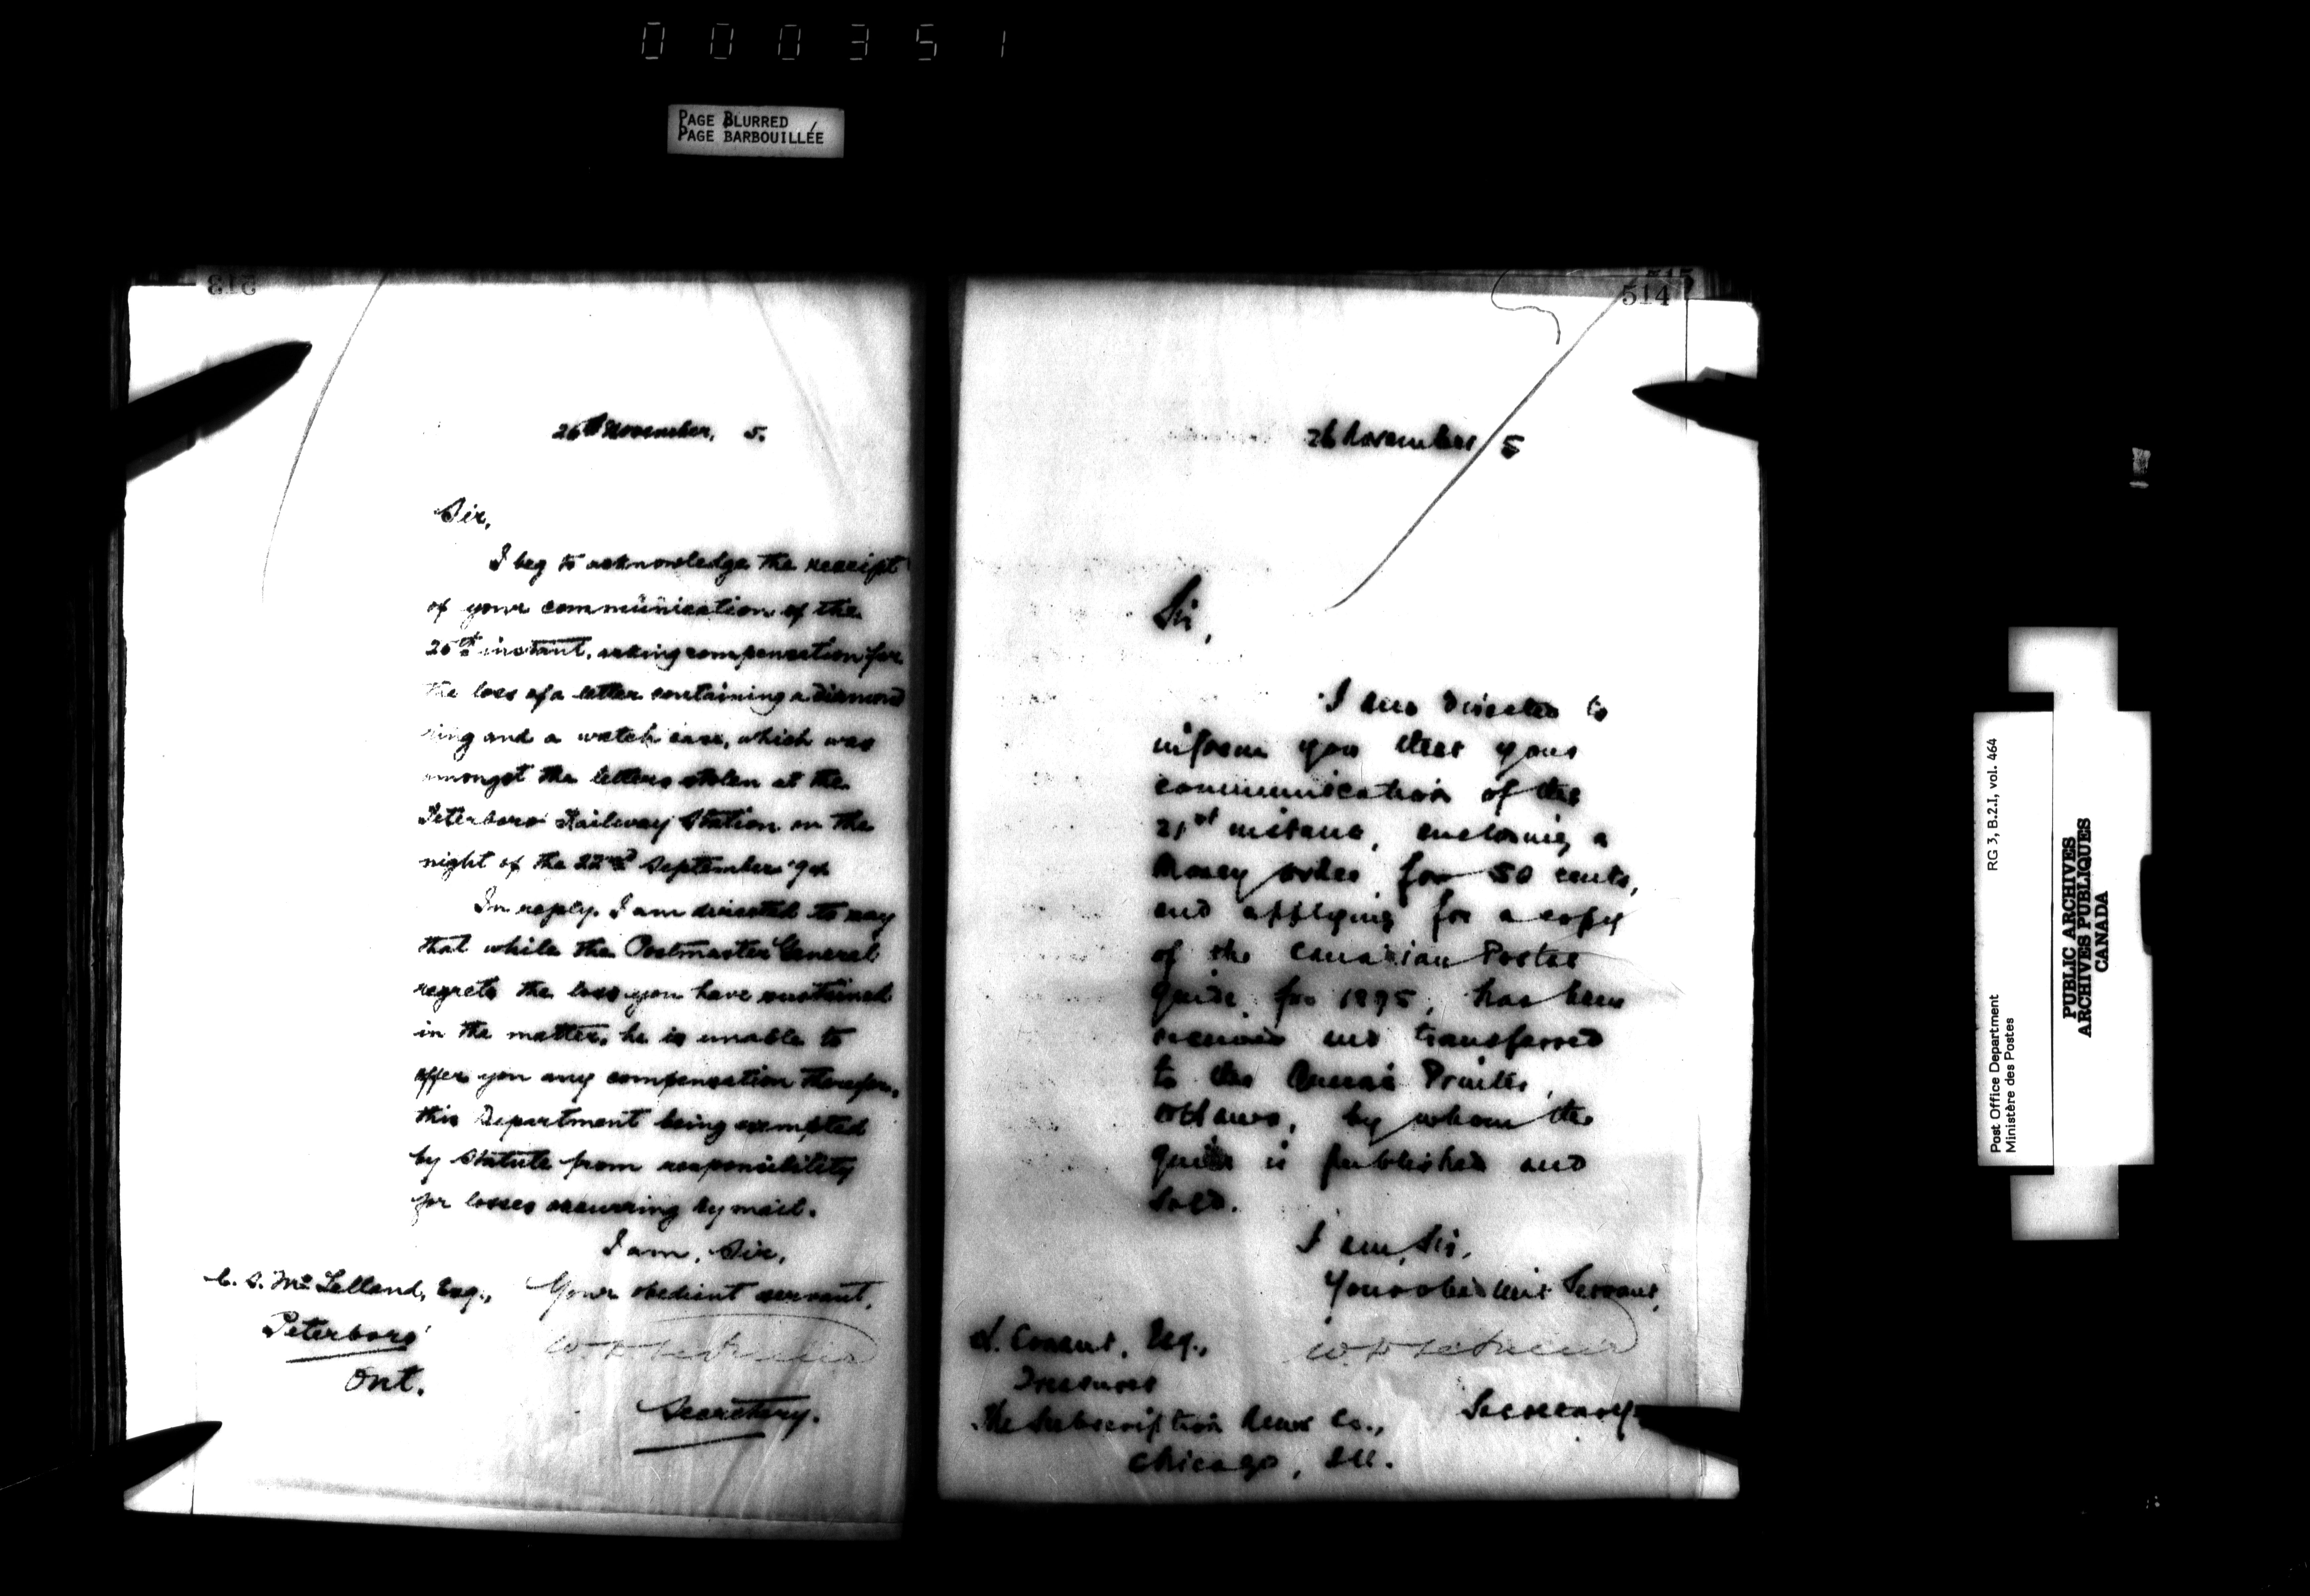 000351
PAGE BLURRED
PAGE BARBOUILLÉE
513
26th November, 5.
Sir,
I beg to acknowledge the receipt
of your communication of the
25th instant, asking compensation for
the loss of a letter containing a diamond
ring and a watch case, which was
amongst the letters stolen at the
Peterboro' Railway Station on the
night of the 22nd September '94
In reply, I am directed to say
that while the Postmaster General
regrets the loss you have sustained
in the matter, he is unable to
offer you any compensation therefor,
this Department being exempted
by statute from responsibility
for losses occurring by mail.
I am, Sir,
Your obedient servant,
Secretary.
C. S. McLelland, Esq.,
Peterboro'
Ont.
515
514
26 November 5
Sir,
I am directed to
inform you that your
communication of the
21st instant, enclosing a
Money order for 50 cents,
and applying for a copy
of the Canadian Postal
Guide for 1895, has been
received and transferred
to the Queen's Printer,
Ottawa, by whom the
guide is published and
sold.
I am, Sir,
Your obedient Servant,
Secretary.
Conant, Esq.,
Treasurer
The Subscription News Co.,
Chicago, Ill.
Post Office Department RG 3, B.2.I, vol. 464
Ministère des Postes
PUBLIC ARCHIVES
ARCHIVES PUBLIQUES
CANADA